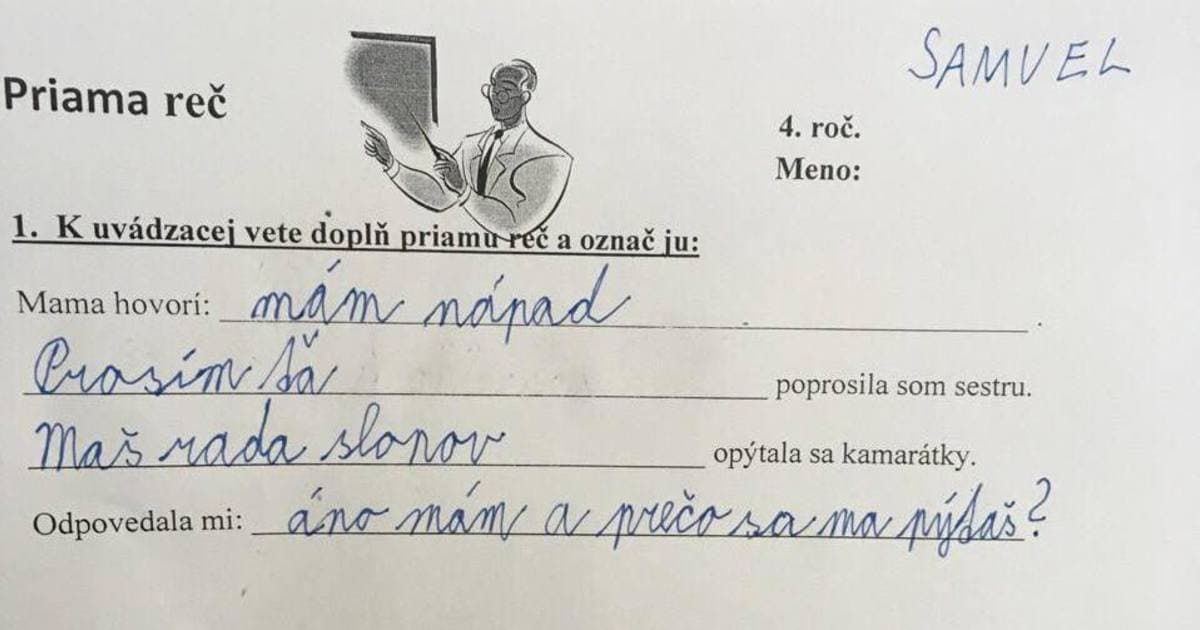 SAMUEL
Priama reč
4. roč.
Meno:
1. K uvádzacej vete doplň priamu reč a označ ju:
Mama hovorí: mám nápad .
Prosím ťa poprosila som sestru.
Maš rada slonov opýtala sa kamarátky.
Odpovedala mi: áno mám a prečo sa ma pýtaš?